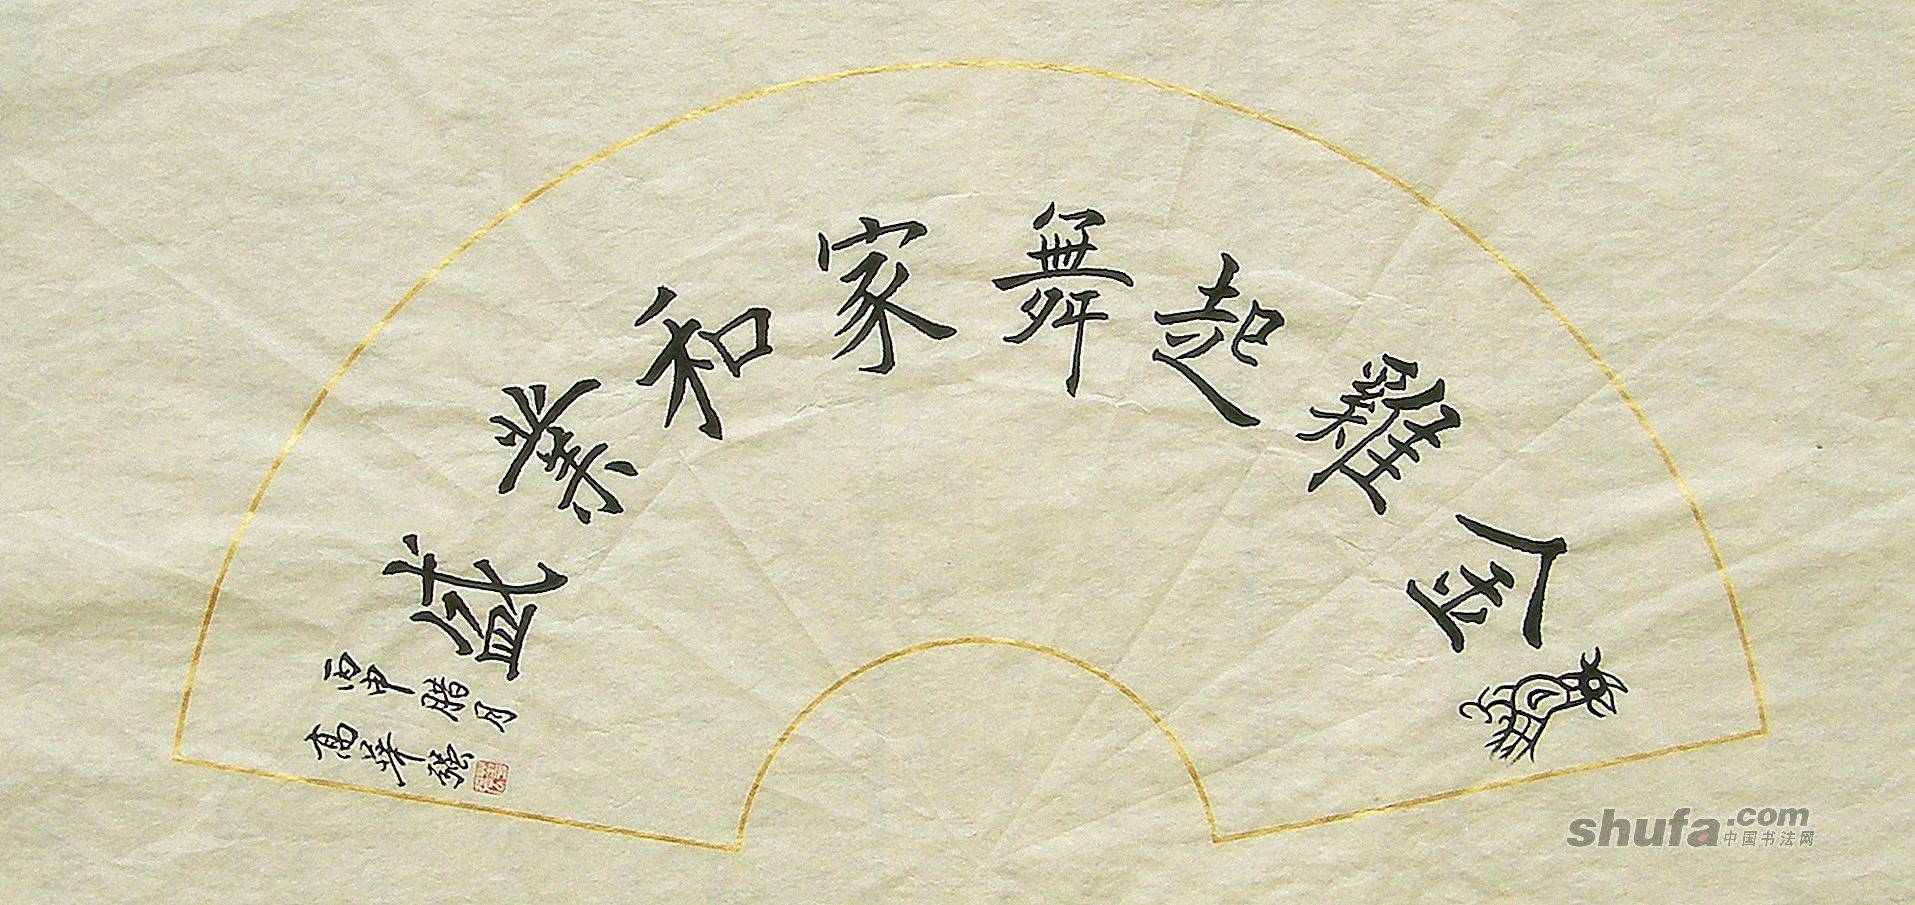 金雞起舞家和業盛
腊月
高華強
shufa.com
中国书法网